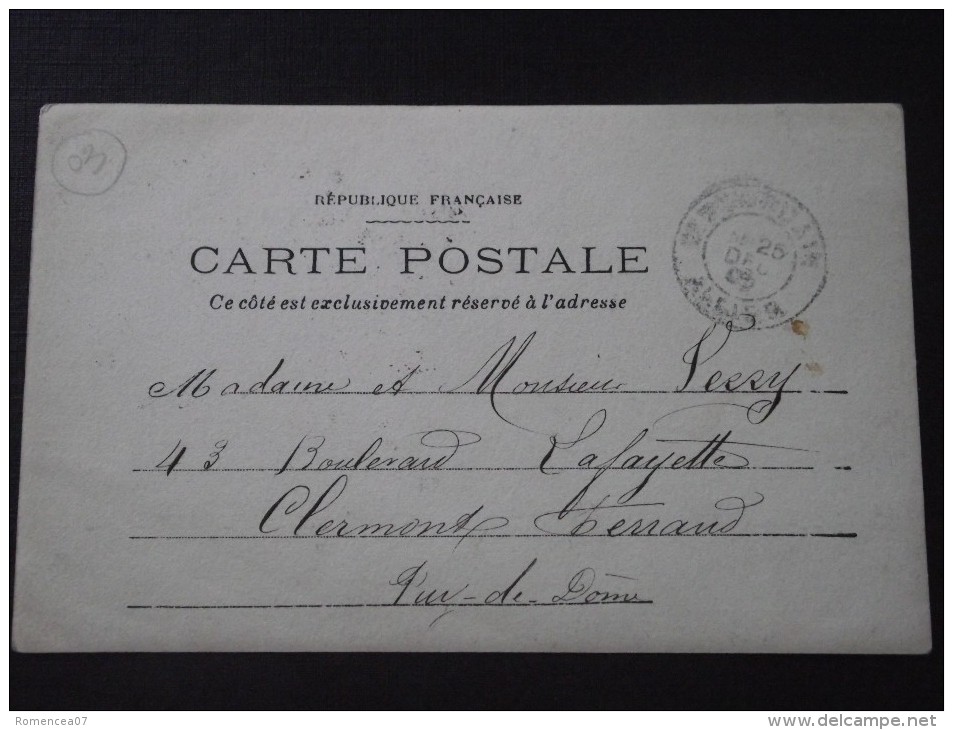 03
RÉPUBLIQUE FRANÇAISE
CARTE POSTALE
Ce côté est exclusivement réservé à l'adresse
25
DEC
ALLIER
Madame et Monsieur Pessy
43 Boulevard Lafayette
Clermont Ferrand
Puy-de-Dôme
Romencea07
www.delcampe.net